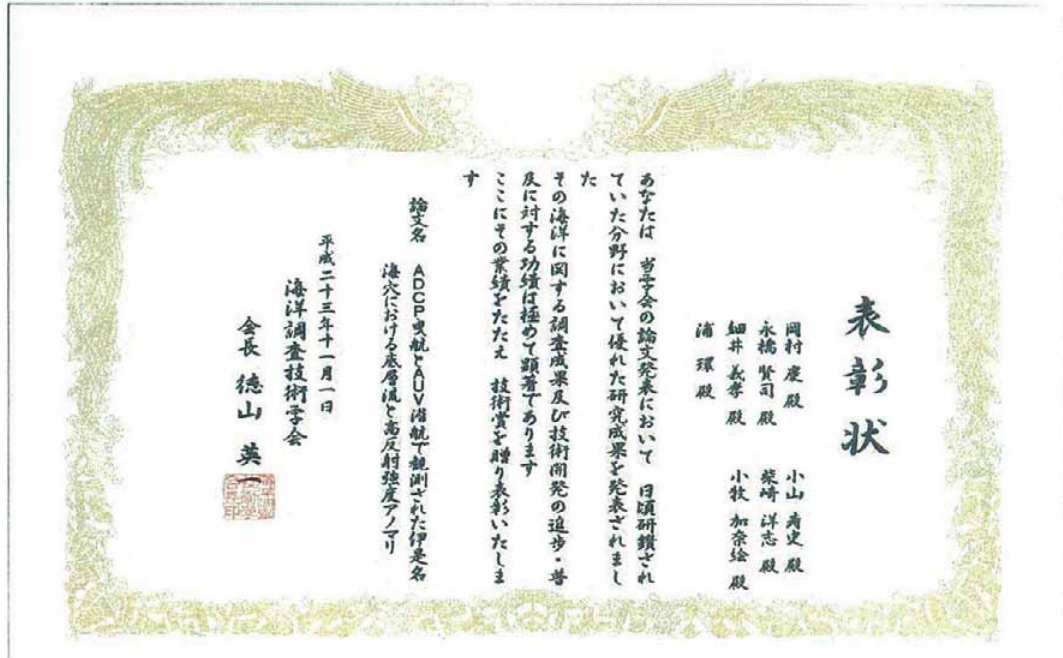 表彰状
岡村 慶殿
小山 寿史殿
永橋 賢司殿
柴崎 洋志殿
細井 義孝殿
小牧 加奈絵殿
浦 環殿
あなたは 当学会の論文発表において 日頃研鑽され
ていた分野において優れた研究成果を発表されまし
た
その海洋に関する調査成果及び技術開発の進歩・普
及に対する功績は極めて顕著であります
ここにその業績をたたえ 技術賞を贈り表彰いたしま
す
論文名 ADCP曳航とAUV潜航で観測された伊是名
海穴における底層流と高反射強度アノマリ
平成二十三年十一月一日
海洋調査技術学会
会長 徳山 英一